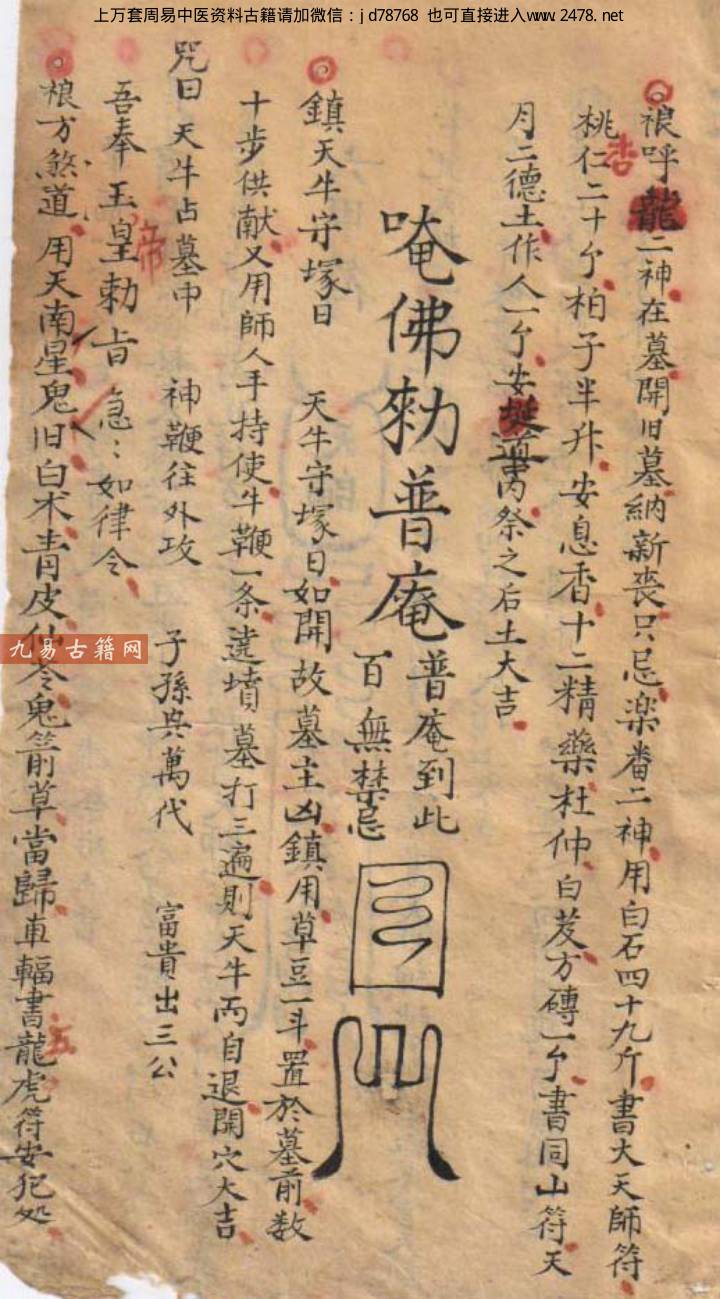 上万套周易中医资料古籍请加微信：jd78768 也可直接进入www.2478.net
禳呼龍二神在墓開旧墓納新喪只忌楽番二神用白石四十九斤書大天師符
桃仁二十个柏子半升安息香十二精藥杜仲白芨方磚一个書同山符天
杏
月二德土作人一个安埏道内祭之后土大吉
唵佛勅普庵
普庵到此
百無禁忌
鎮天牛守塚日 天牛守塚日如開故墓主凶鎮用草豆一斗置於墓前数
十步供献又用師人手持使牛鞭一条遶墳墓打三遍則天牛而自退開穴大吉
咒曰 天牛占墓中 神鞭往外攻 子孫興萬代 富貴出三公
吾奉玉皇勅旨 急々如律令
帝
禳方煞道 用天南星鬼旧白术青皮 令鬼箭草當歸車輻書龍虎符安犯処
五
九易古籍网